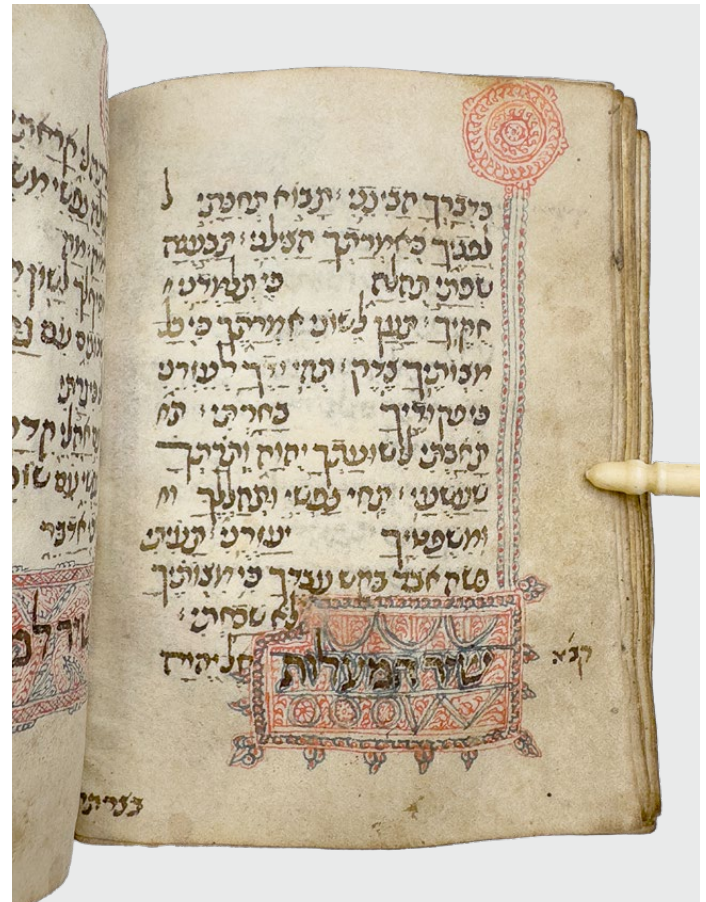 כדברך הבינני תבוא תחנתי ל
לפניך כאמרתך הצילני תבענה
שפתי תהלה כי תלמדני ח
חקיך תען לשוני אמרתך כי כל
מצותיך צדק תהי ידך לעזרני
כי פקודיך בחרתי ת
תאבתי לישועתך יהוה ותורתך
שעשעי תחי נפשי ותהללך ו
ומשפטיך יעזרני תעיתי
כשה אבד בקש עבדך כי מצותיך
לא שכחתי
שיר המעלות אל יהוה
נפשי
לשון
עם
אהלי
עם
אדבר
שיר